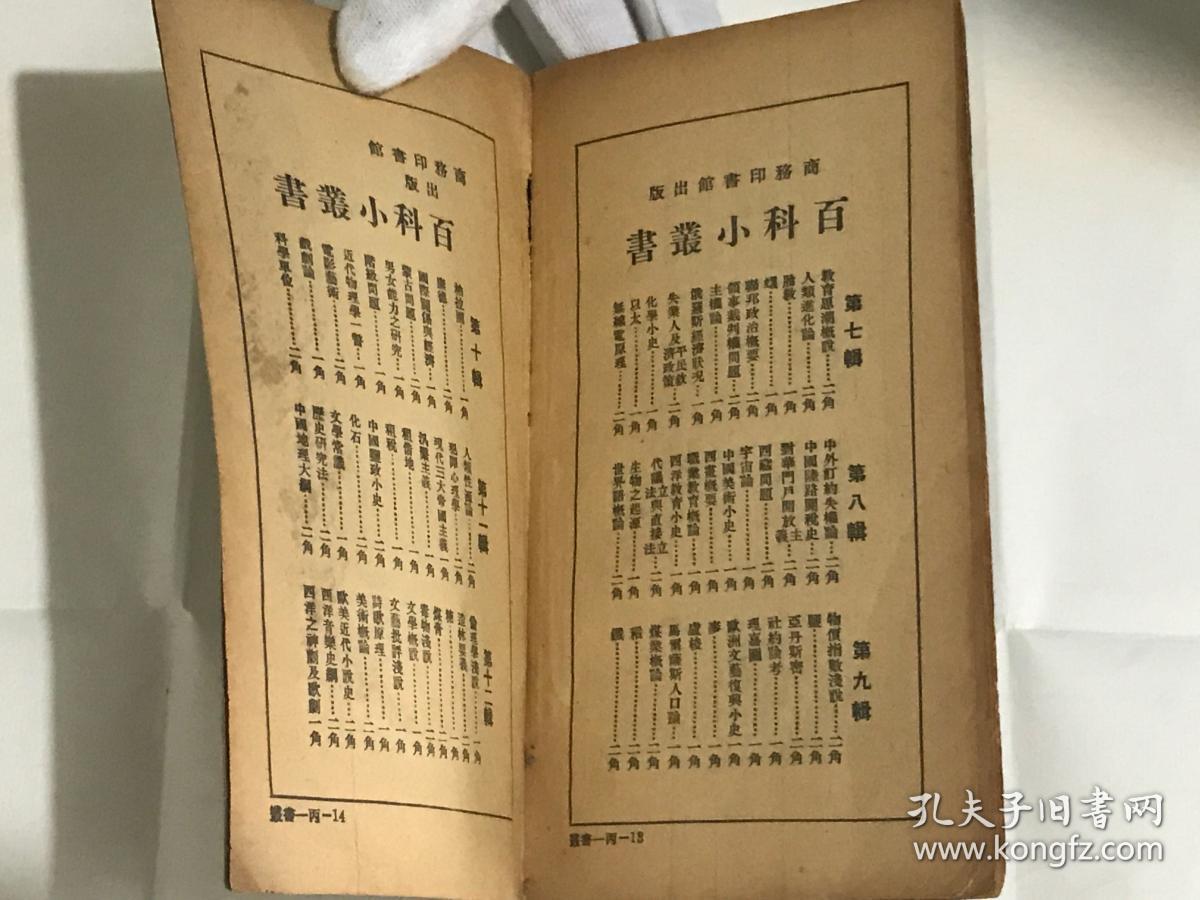 商務印書館出版
百科小叢書
第七輯
教育思潮概說……二角
人類進化論……二角
胎教……一角
蠅……一角
聯邦政治概要……二角
領事裁判權問題……二角
主權論……一角
俄羅斯經濟狀況…一角
失業人及平民救濟政策…二角
化學小史……一角
以太……一角
無線電原理……二角
第八輯
中外訂約失權論…二角
中國陸路關稅史…二角
對華門戶開放主義…二角
西藏問題……二角
宇宙論……一角
中國美術小史……一角
西畫概要……一角
職業教育概論……一角
西洋教育小史……一角
代議立法與直接立法…二角
生物之起源……一角
世界語概論……二角
第九輯
物價指數淺說……二角
鹽……二角
亞丹斯密……二角
社約論考……一角
理嘉圖……一角
歐洲文藝復興小史一角
麥……一角
盧梭……一角
馬爾薩斯人口論…一角
煤業概論……二角
稻……一角
鐵……二角
叢書—丙—13
商務印書館出版
百科小叢書
第十輯
納拉圖……一角
康德……二角
國際關係與經濟…一角
蒙古問題……二角
男女能力之研究…一角
階級問題……一角
近代物理學一瞥…一角
電影藝術……二角
戲劇論……一角
科學單位……二角
第十一輯
人類性通論……二角
現代三大帝國主義一角
汎繫主義……一角
租借地……一角
租稅……一角
中國鹽政小史……二角
化石……二角
文學常識……一角
歷史研究法……二角
中國地理大綱……二角
第十二輯
倫理學淺說……一角
造林要義……二角
糖……一角
煤膏……二角
毒物淺說……二角
文學概說……一角
文藝批評淺說……一角
詩歌原理……一角
美術概論……二角
歐美近代小說史…一角
西洋音樂史綱……二角
西洋之神劇及歌劇一角
叢書—丙—14
孔夫子旧书网
www.kongfz.com